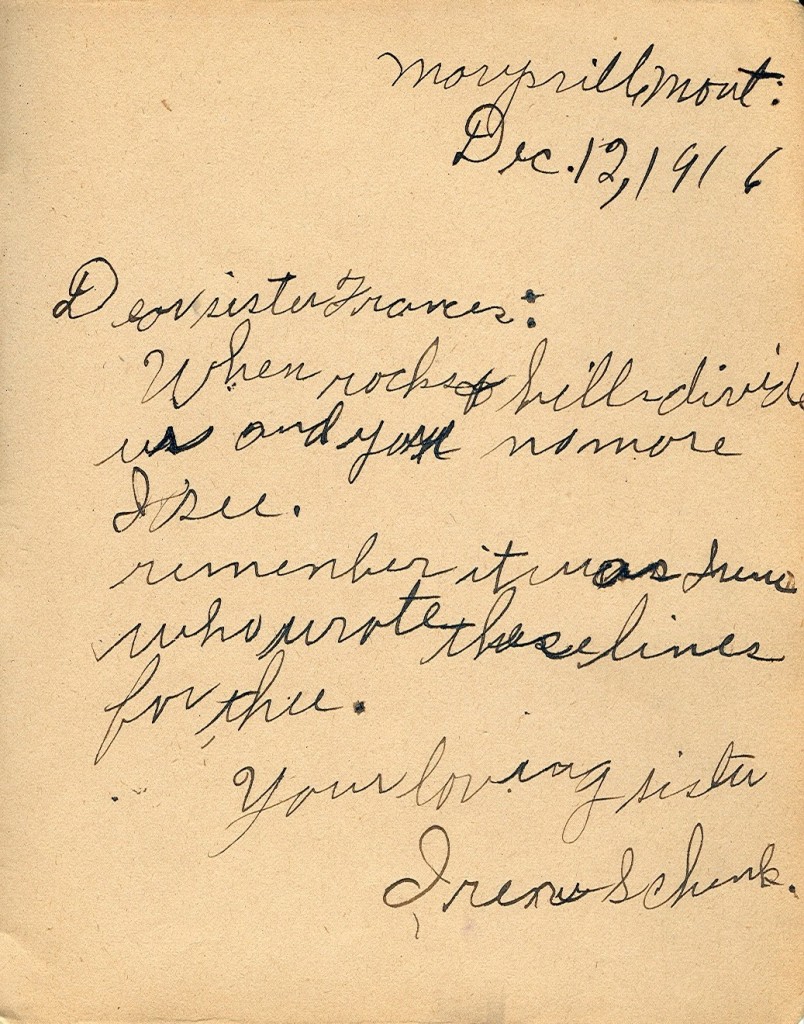 Marysville, Mont:
Dec. 12, 1916
Dear sister Frances:
When rocks & hills divide
us and you no more
I see.
remember it was Irene
who wrote these lines
for thee.
Your loving sister
Irene Schenk.